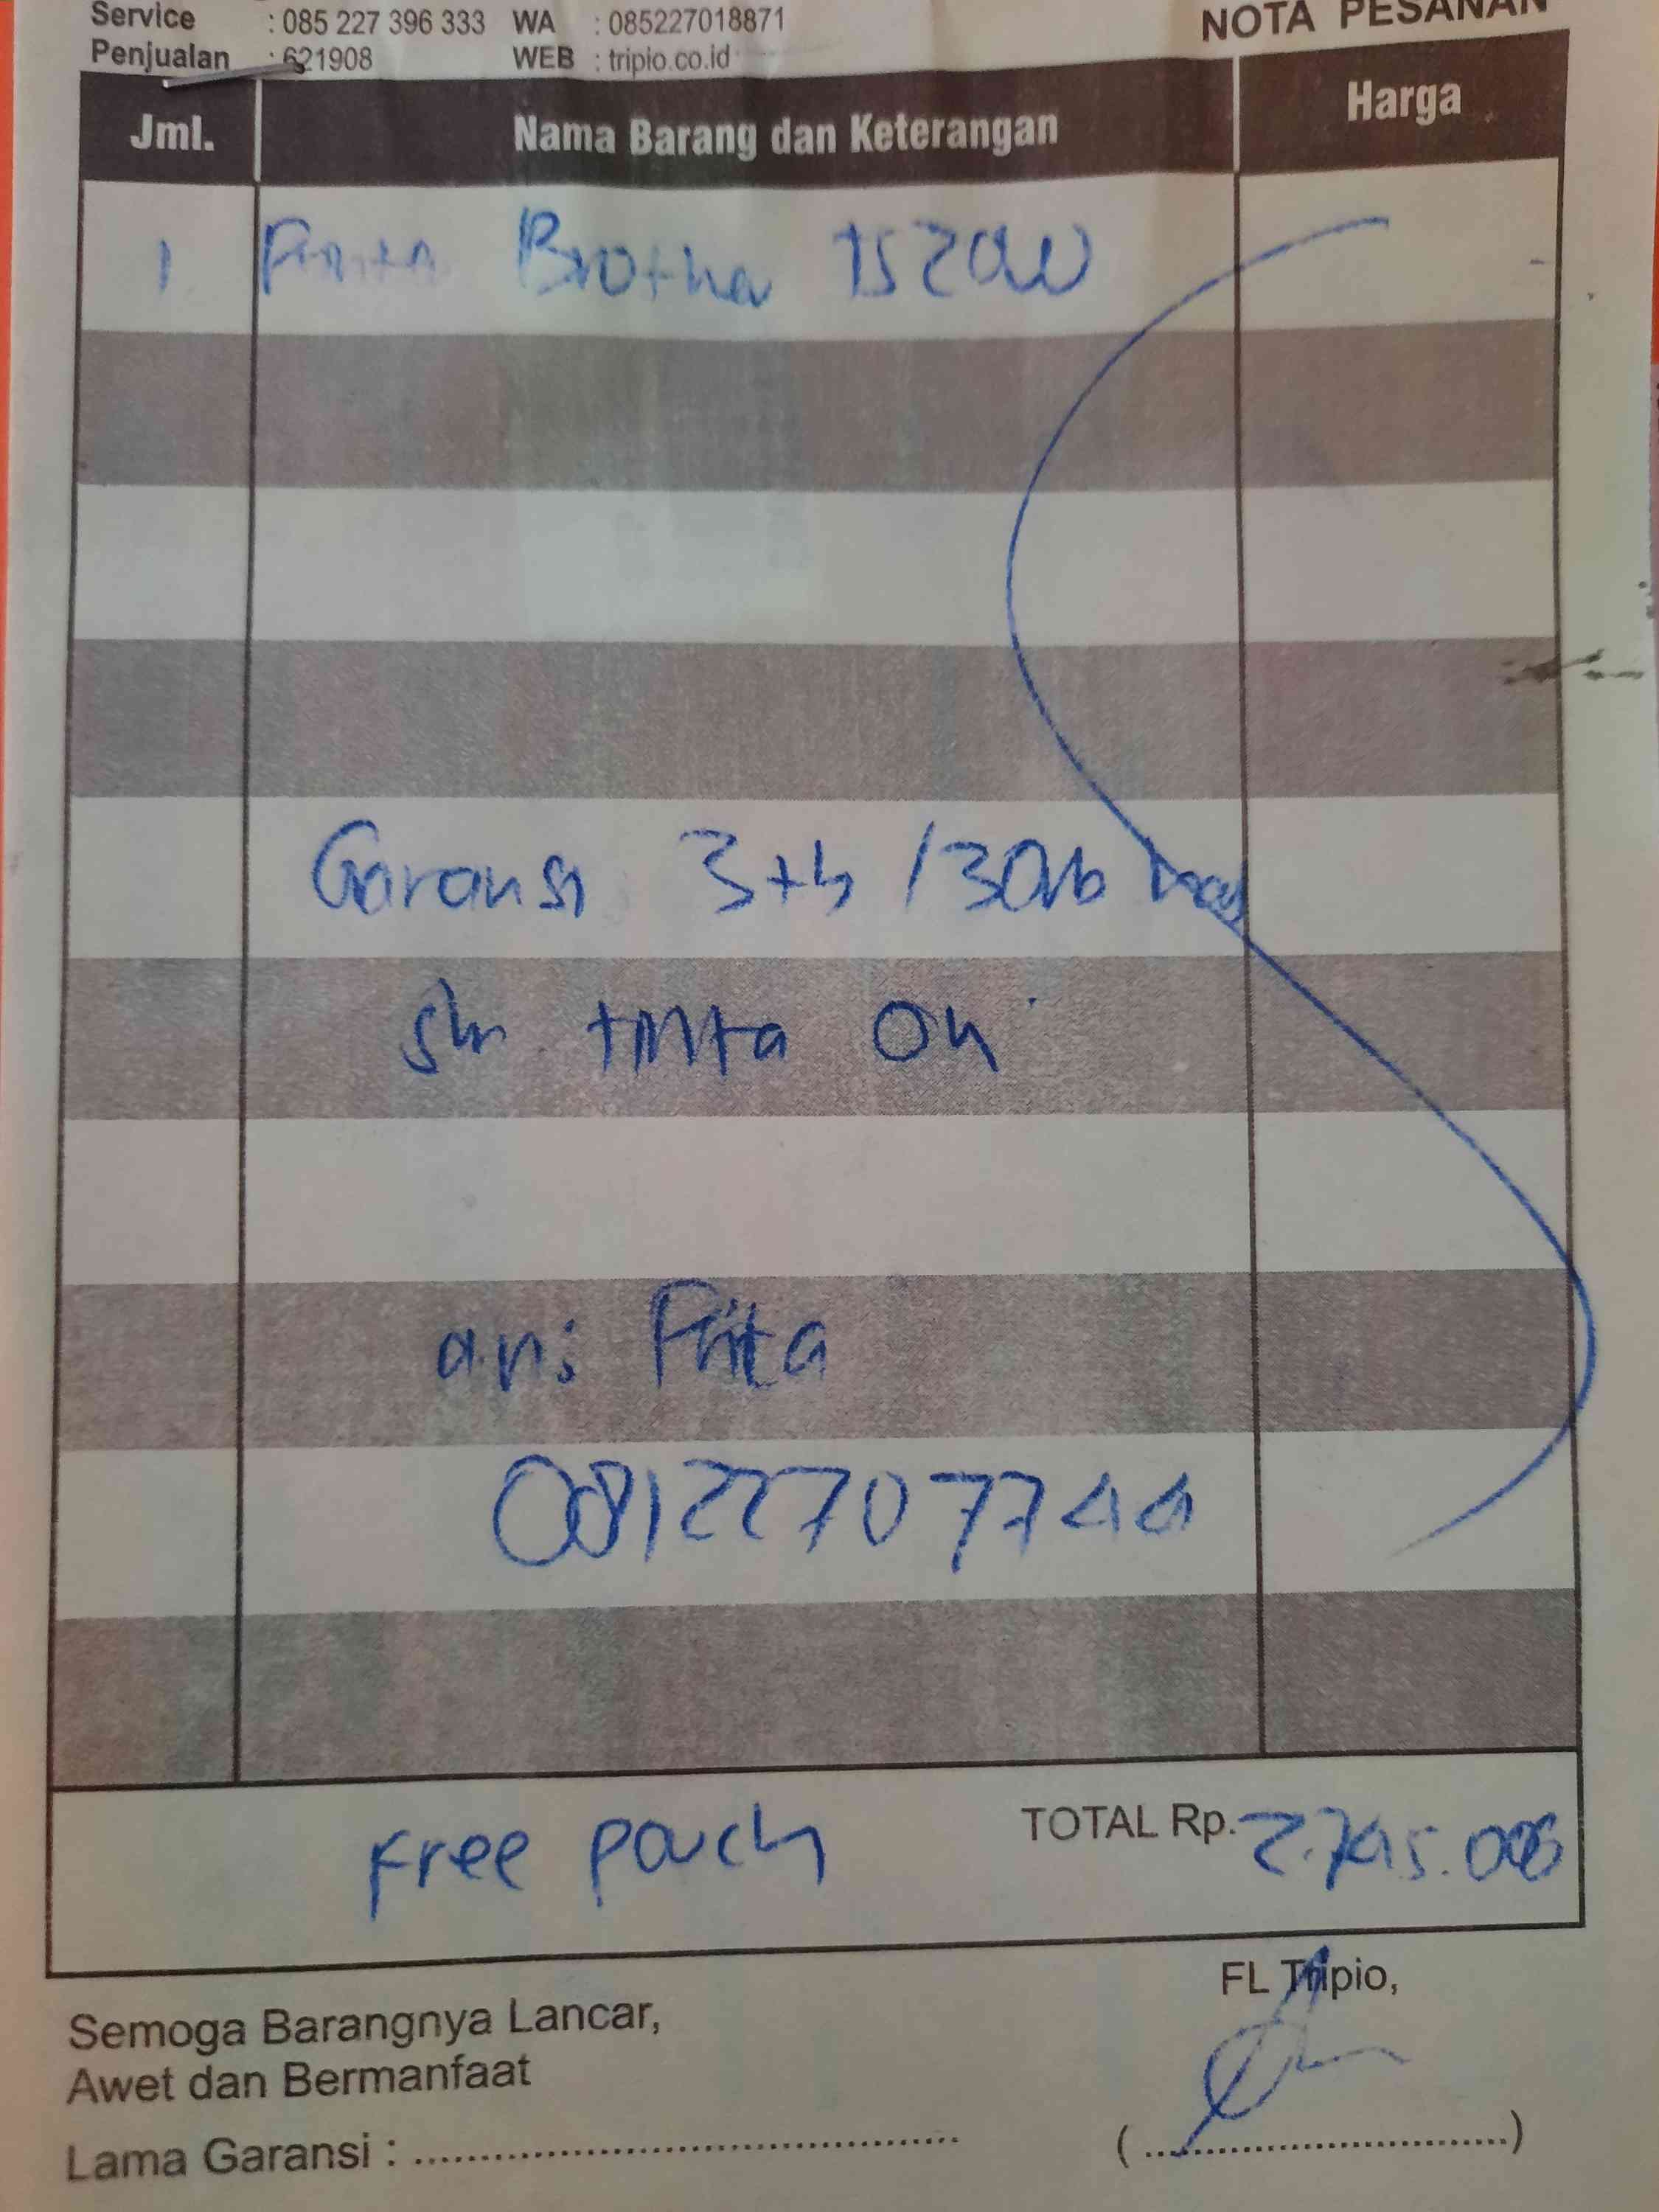 Service : 085 227 396 333 WA : 085227018871
NOTA PESANAN
Penjualan : 621908 WEB : tripio.co.id
Jml. Nama Barang dan Keterangan Harga
1 Brother T520W
Garansi 3th / 30rb
tinta Ori
an: Prita
08122707744
Free pouch TOTAL Rp. 2.745.000
FL Tripio,
Semoga Barangnya Lancar,
Awet dan Bermanfaat
Lama Garansi : ........................................
(................................)